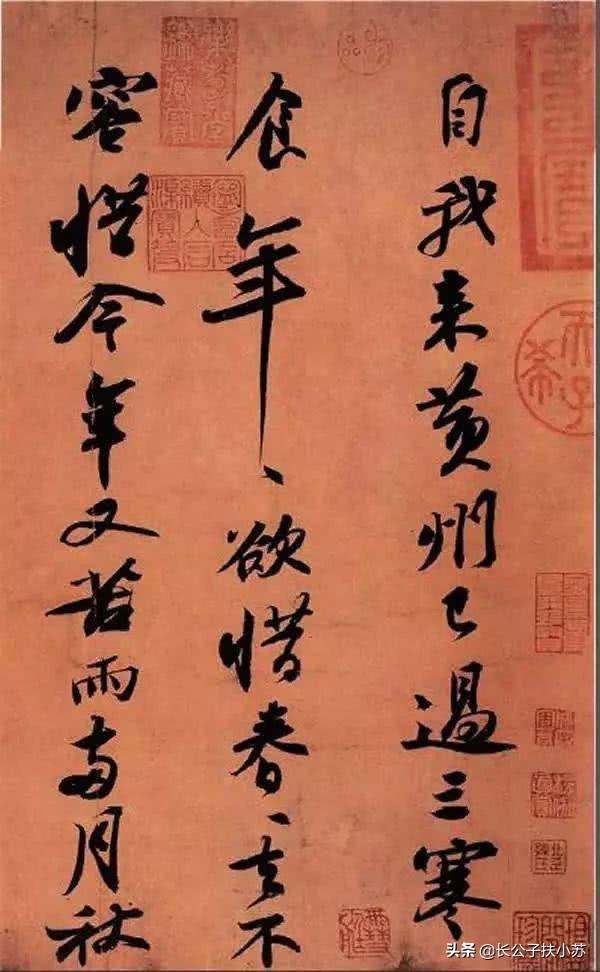 自我来黄州已過三寒
食年〻欲惜春〻去不
容惜今年又苦雨兩月秋
头条 @长公子扶小苏